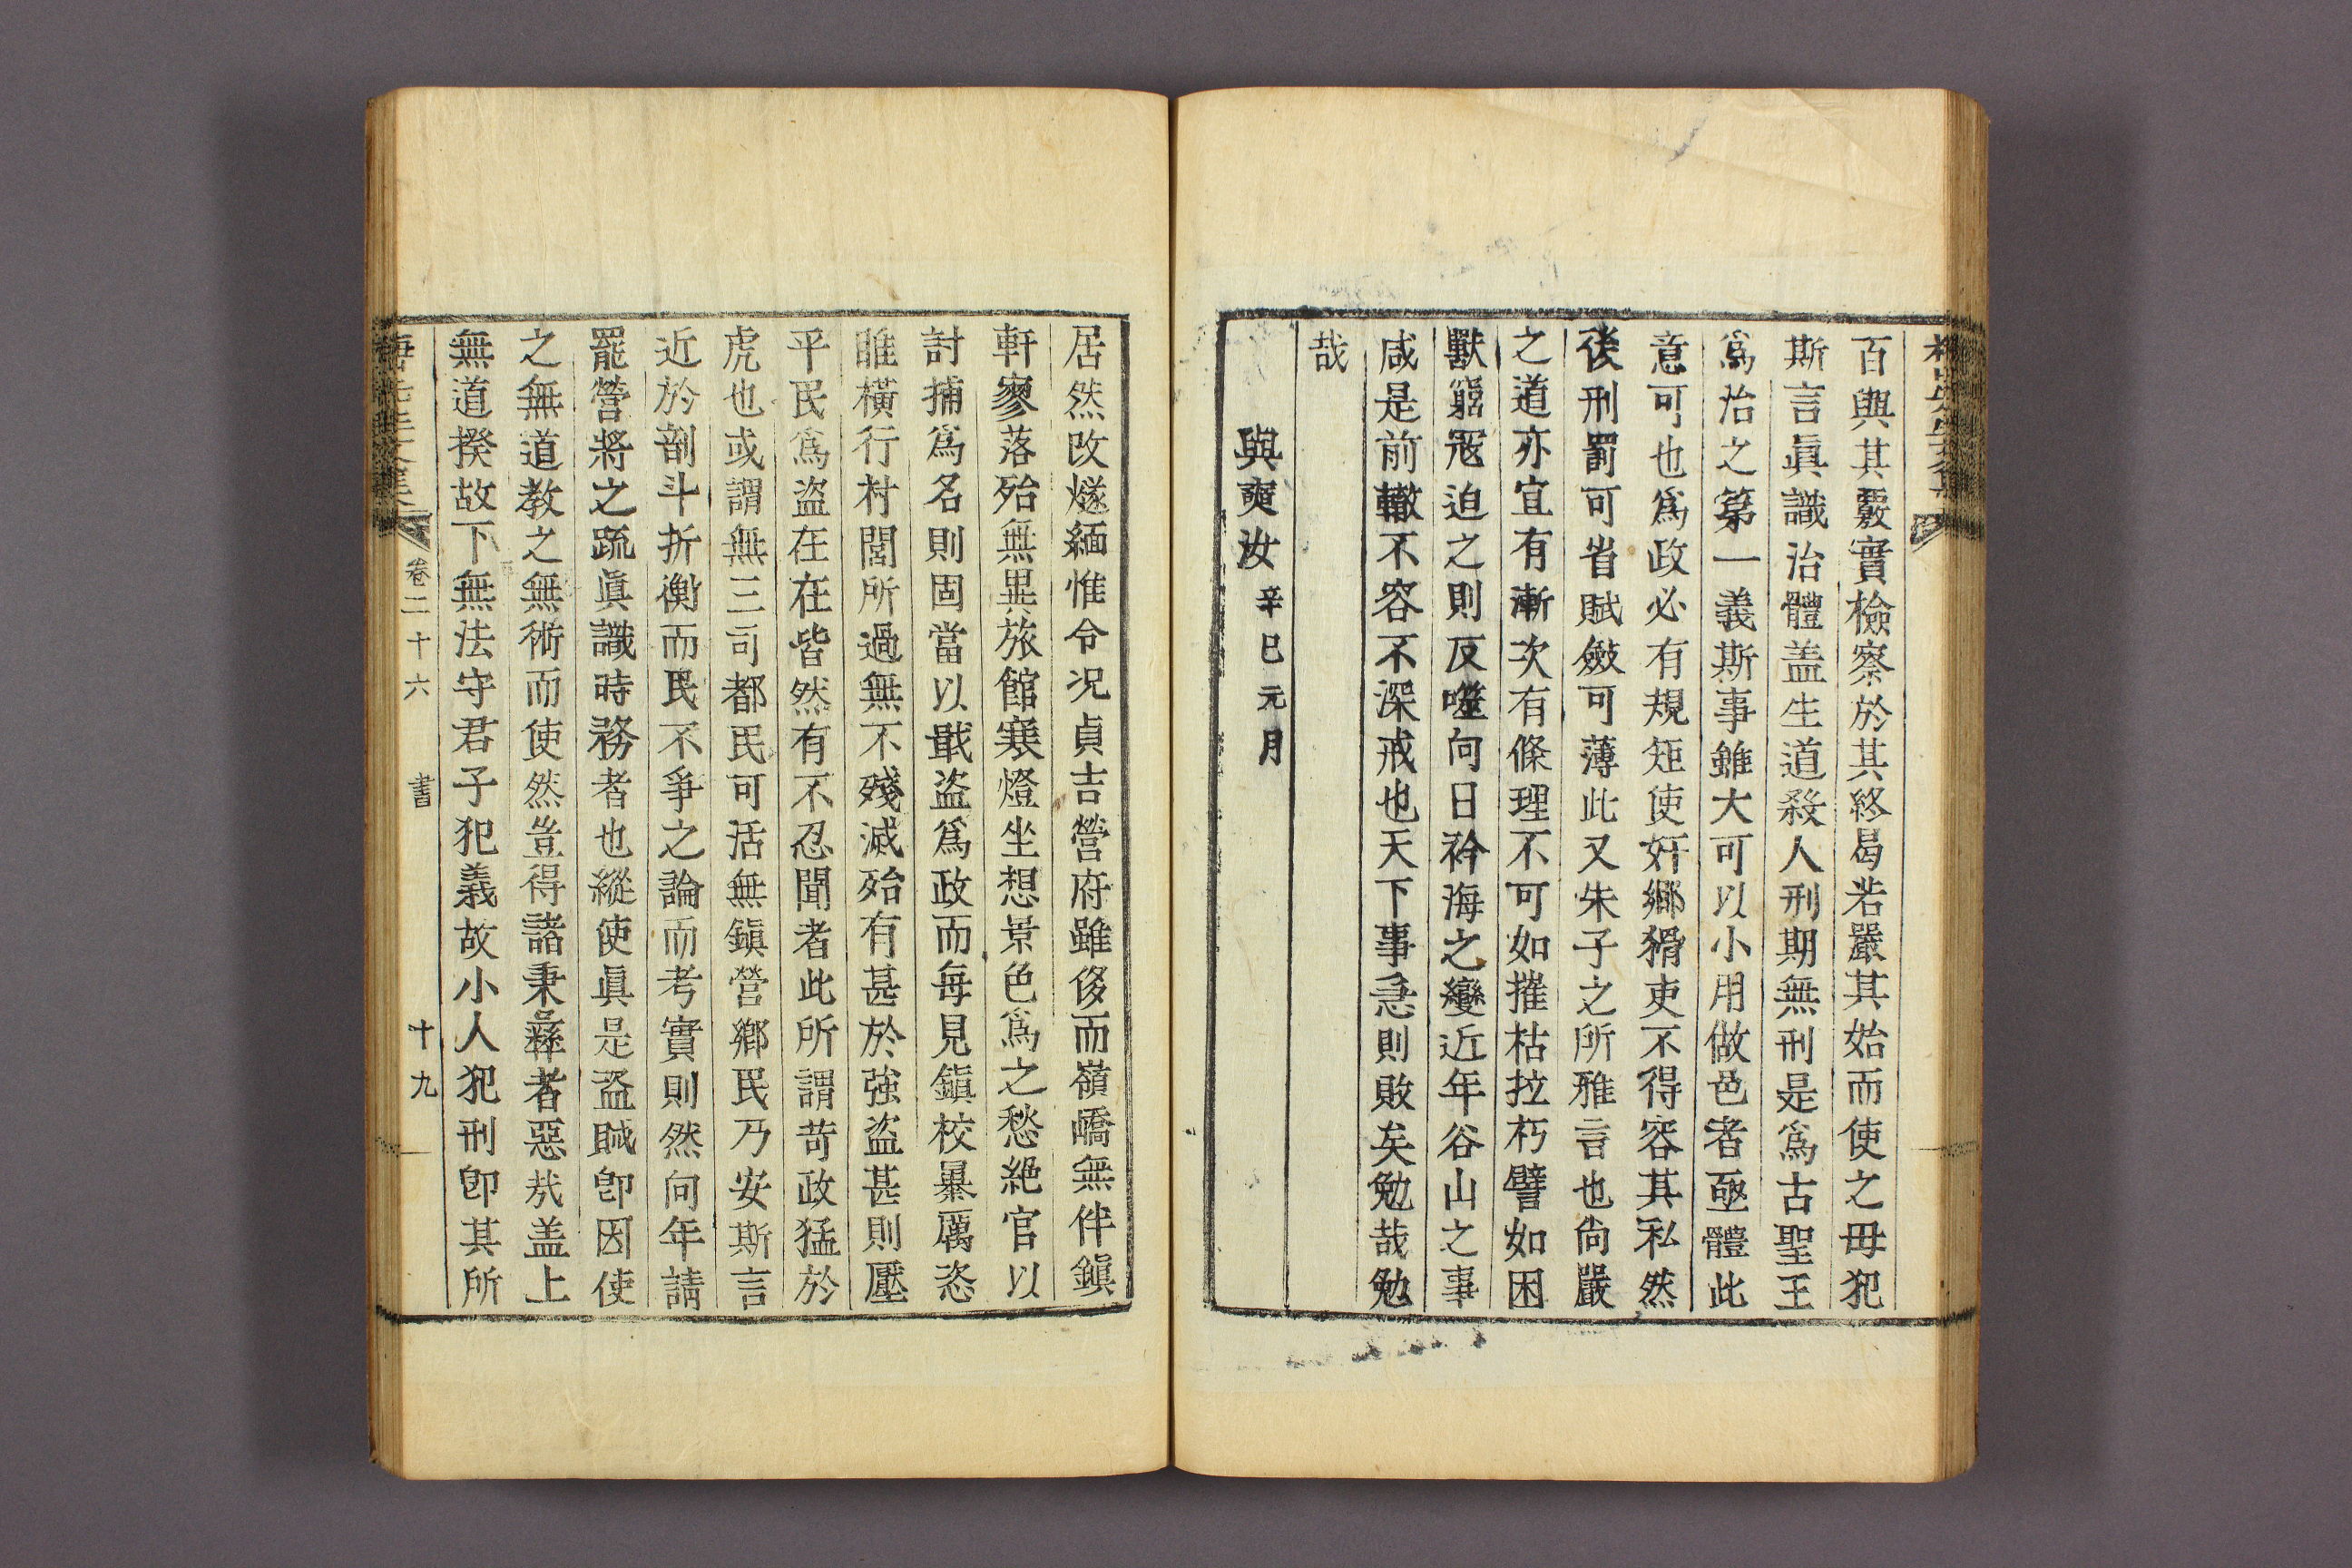 百與其覈實檢察於其終曷若嚴其始而使之毋犯
斯言眞識治體盖生道殺人刑期無刑是爲古聖王
爲治之第一義斯事雖大可以小用做邑者亟體此
意可也爲政必有規矩使奸鄕猾吏不得容其私然
後刑罰可省賦斂可薄此又朱子之所雅言也尙嚴
之道亦宜有漸次有條理不可如摧枯拉朽譬如困
獸窮寇迫之則反噬向日衿海之變近年谷山之事
咸是前轍不容不深戒也天下事急則敗矣勉哉勉
哉
與奭汝 辛巳元月
居然改燧緬惟令况貞吉營府雖侈而嶺嶠無伴鎭
軒寥落殆無異旅館寒燈坐想景色爲之愁絶官以
討捕爲名則固當以戢盜爲政而每見鎭校暴厲恣
睢橫行村閭所過無不殘滅殆有甚於強盜甚則壓
平民爲盜在在皆然有不忍聞者此所謂苛政猛於
虎也或謂無三司都民可活無鎭營鄕民乃安斯言
近於剖斗折衡而民不爭之論而考實則然向年請
罷營將之疏眞識時務者也縱使眞是盜賊卽因使
之無道教之無術而使然豈得諸秉彛者惡㢤盖上
無道揆故下無法守君子犯義故小人犯刑卽其所
卷二十六 書 十九